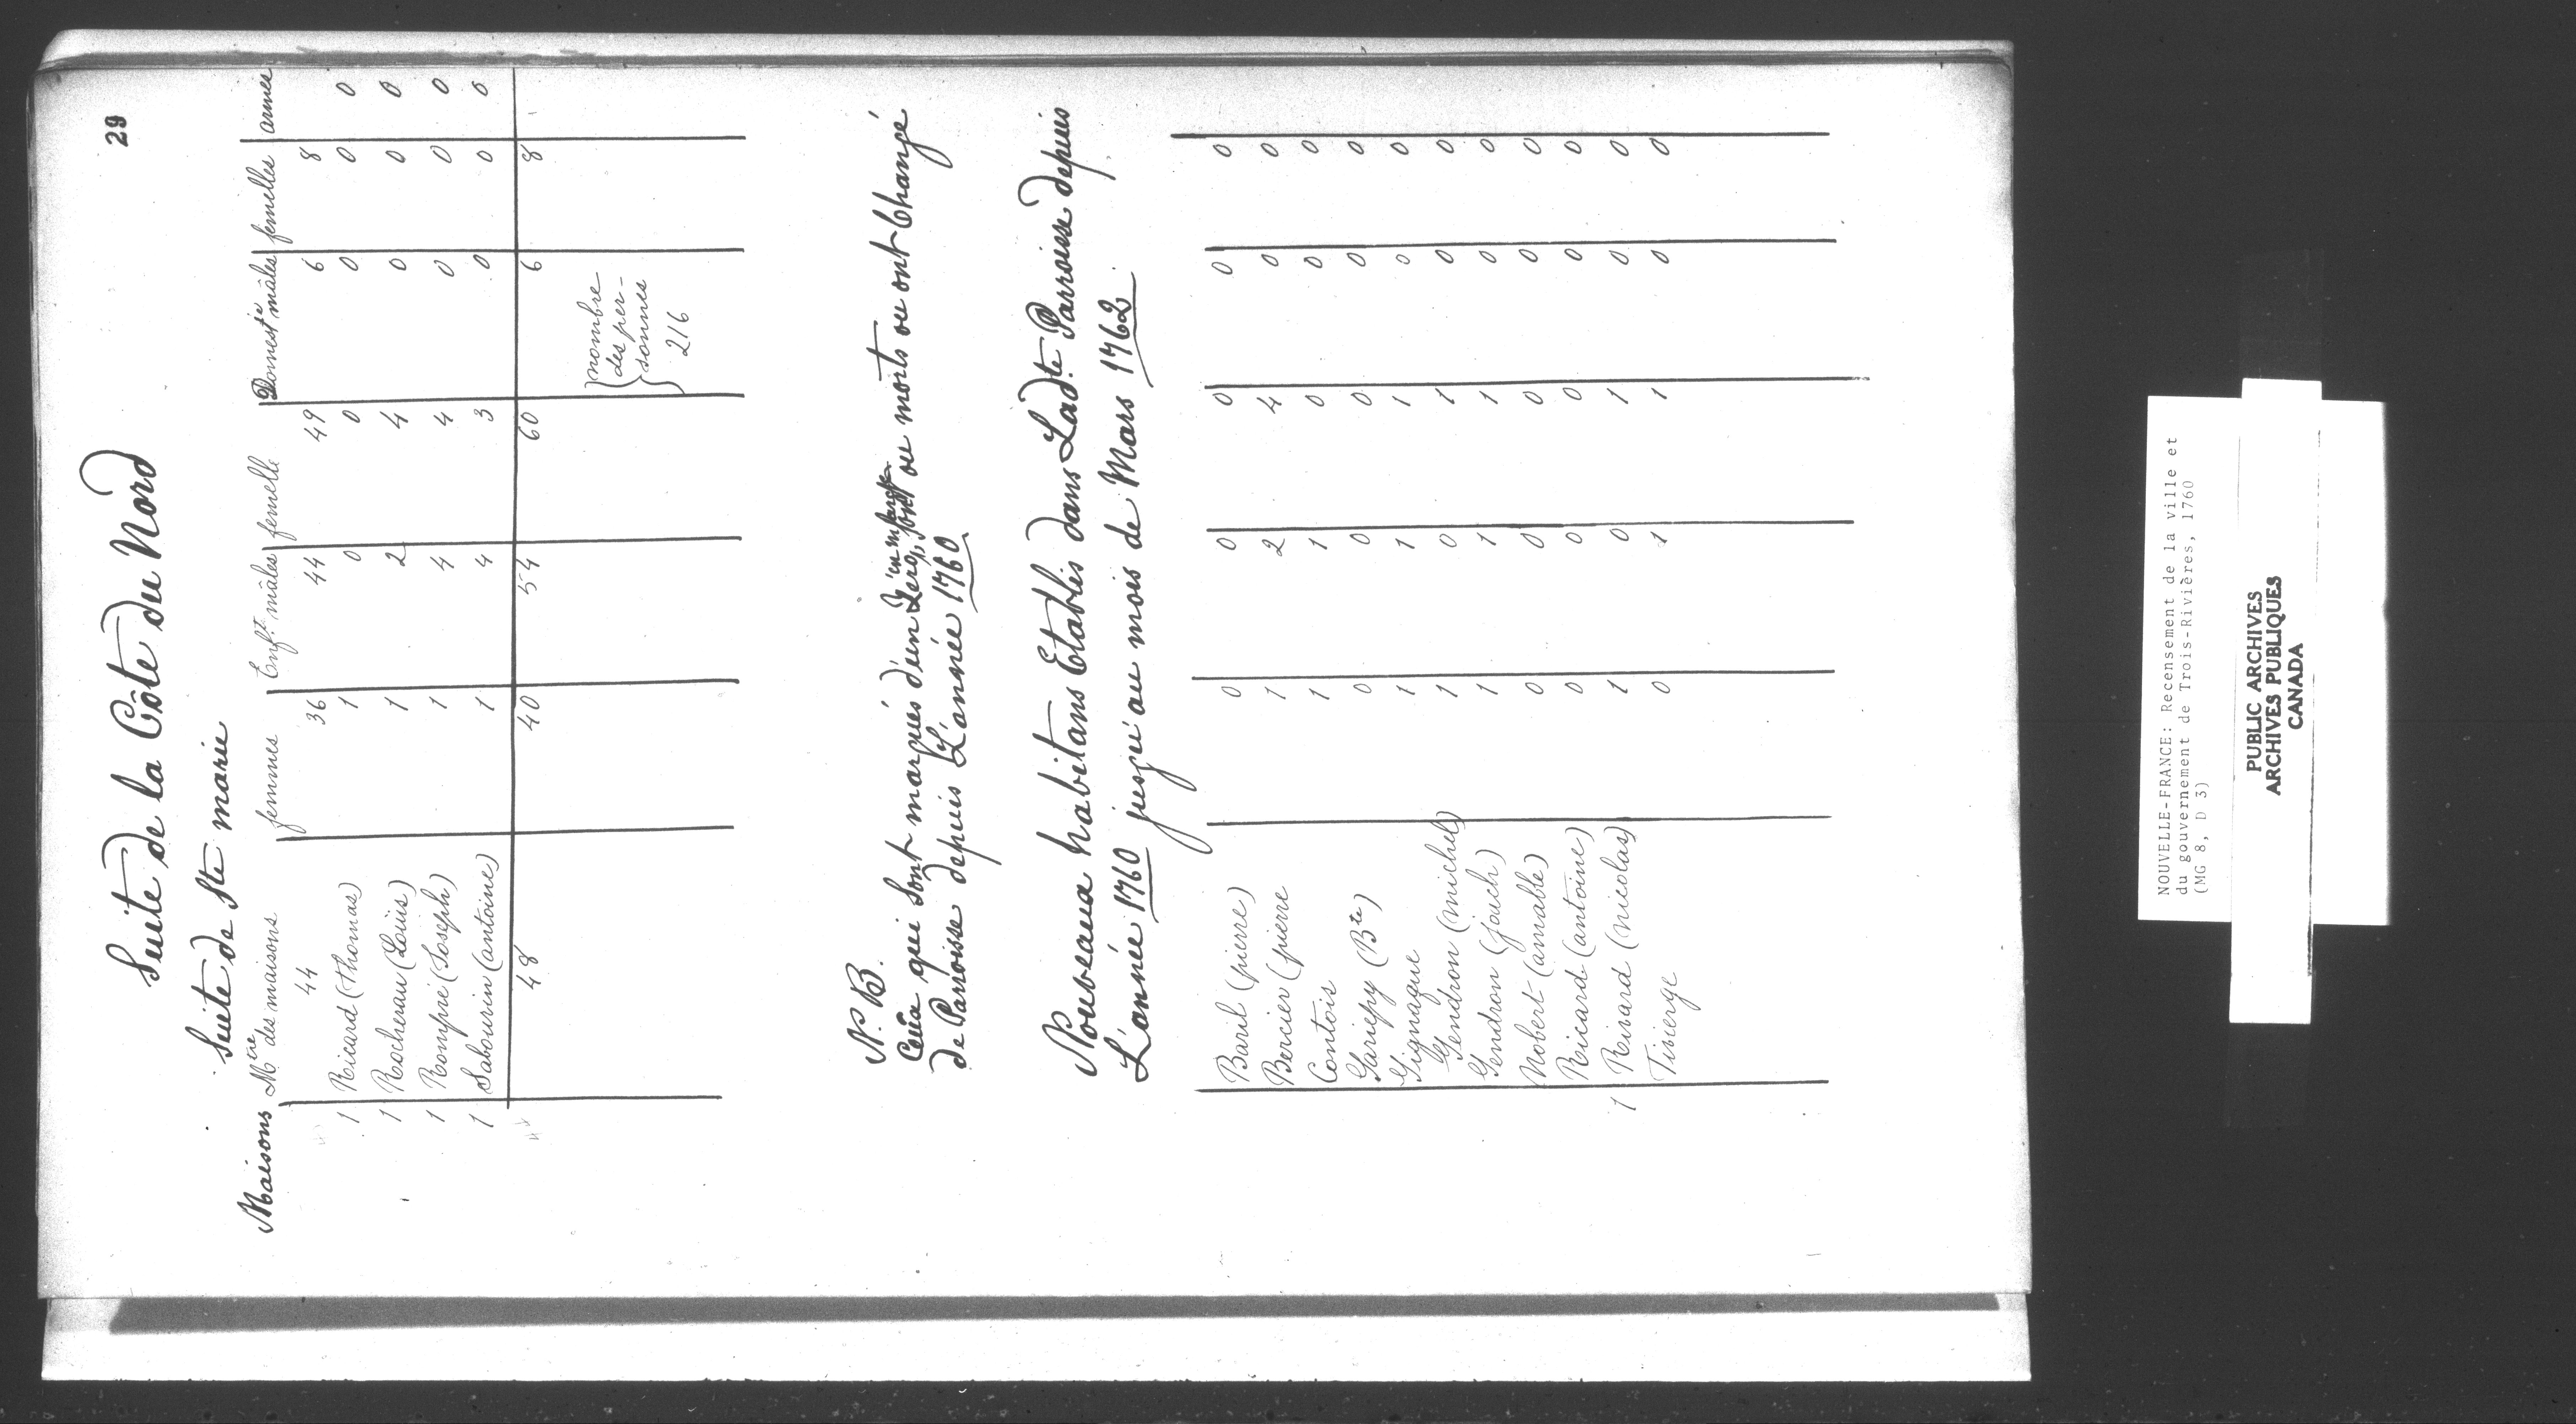 29
Suite de la Côte du Nord
Suite de Ste marie
Maisons Mtre des maisons femmes Enfts mâles femelle Domeste mâles femelles armes
44 36 44 49 6 8
1 Ricard (thomas) 1 0 0 0 0 0
1 Rochereau (Louis) 1 2 4 0 0 0
1 Rompré (Joseph) 1 4 4 0 0 0
1 Sabourin (antoine) 1 4 3 0 0 0
48 40 54 60 6 8
nombre
des per-
sonnes
216
N. B.
Ceux qui sont marqués d'un Zero, en marge sont ou morts ou ont Changé
de Parroisse depuis L'année 1760
Nouveaux habitans Etablis dans Ladte Parroisse depuis
L'année 1760 jusqu'au mois de Mars 1762.
Baril (pierre) 0 0 0 0 0
Bercier (pierre 1 2 4 0 0
Contois 1 1 0 0 0
Gariepy (Bte) 0 0 0 0 0
Gignaque 1 1 1 0 0
Gendron (michel) 1 0 1 0 0
Gendron (joach) 1 1 1 0 0
Nobert (amable) 0 0 0 0 0
Ricard (antoine) 0 0 0 0 0
1 Rivard (nicolas) 1 0 1 0 0
Tivierge 0 1 1 0 0
NOUVELLE-FRANCE: Recensement de la ville et
du gouvernement de Trois-Rivières, 1760
(MG 8, D 3)
PUBLIC ARCHIVES
ARCHIVES PUBLIQUES
CANADA